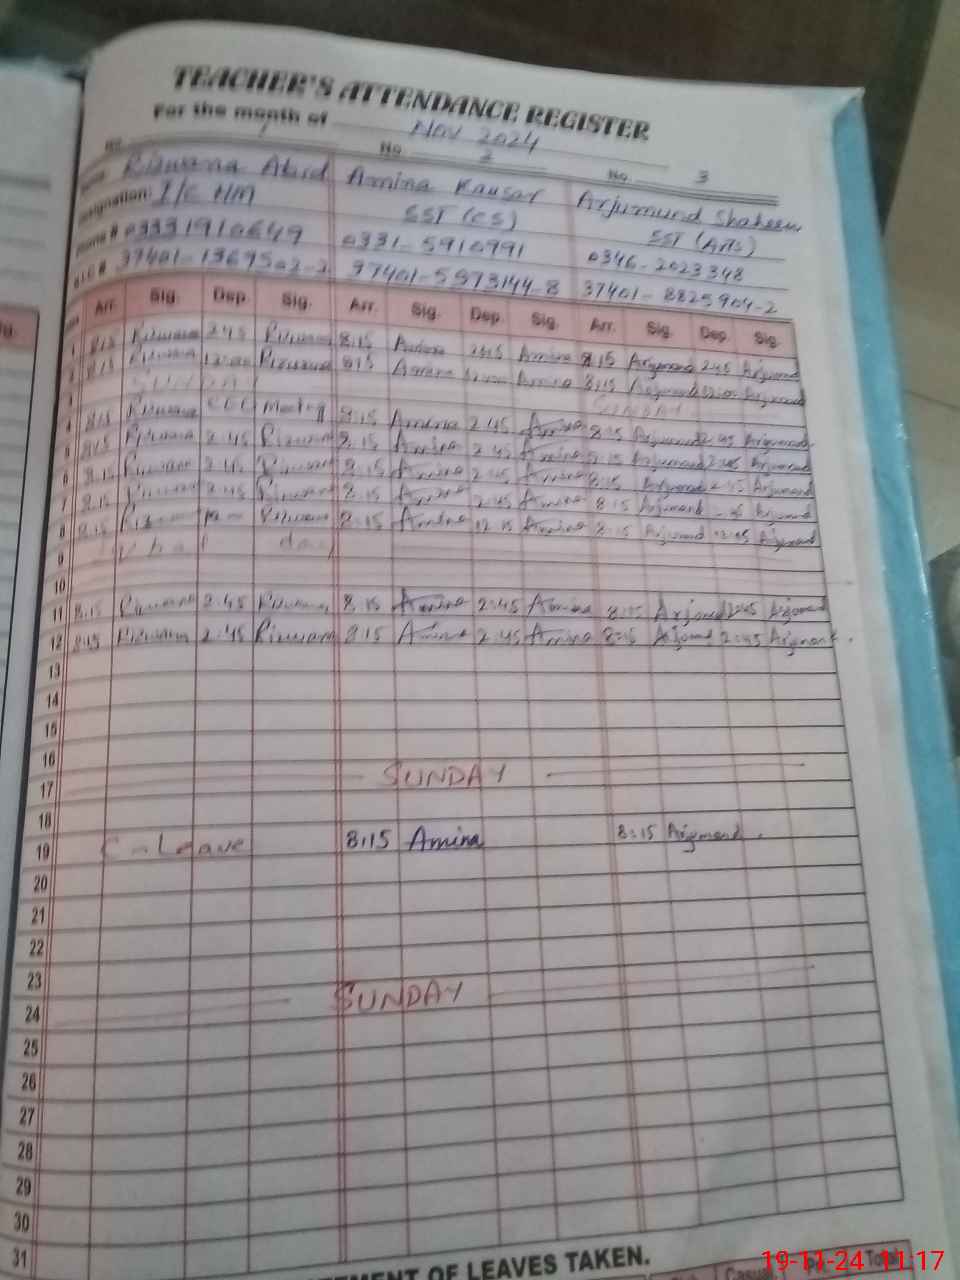 TEACHER'S ATTENDANCE REGISTER
For the month of Nov 2024
1 No. 2 No. 3
Rizwana Abid Amina Kausar Arjumund Shaheen
Designation: I/C HM SST (CS) SST (Arts)
03331910649 0331-5910991 0346-2023348
37401-5973144-8 37401-8825904-2
Arr. Sig. Dep. Sig. Arr. Sig. Dep. Sig. Arr. Sig. Dep. Sig.
1 8:15 Rizwana 2:45 Rizwana 8:15 Amina 2:45 Amina 8:15 Arjumand 2:45 Arjumand
2 8:15 Rizwana 12:00 Rizwana 8:15 Amina Amina 8:15 Arjumand Arjumand
SUNDAY SUNDAY
4 8:15 Rizwana Meeting 8:15 Amina 2:45 Amina 8:15 Arjumand 2:45 Arjumand
5 8:15 Rizwana 2:45 Rizwana 8:15 Amina 2:45 Amina 8:15 Arjumand 2:45 Arjumand
6 8:15 Rizwana 2:45 Rizwana 8:15 Amina 2:45 Amina 8:15 Arjumand 2:45 Arjumand
7 8:15 Rizwana 2:45 Rizwana 8:15 Amina 2:45 Amina 8:15 Arjumand Arjumand
8 8:15 Rizwana 8:15 Amina 12:15 Amina 8:15 Arjumand Arjumand
9 day
10
11 8:15 Rizwana 2:45 Rizwana 8:15 Amina 2:45 Amina 8:15 Arjumand 2:45 Arjumand
12 8:15 Rizwana 2:45 Rizwana 8:15 Amina 2:45 Amina 8:15 Arjumand 2:45 Arjumand
13
14
15
16
17 SUNDAY
18
19 C-Leave 8:15 Amina 8:15 Arjumand
20
21
22
23
24 SUNDAY
25
26
27
28
29
30
31
OF LEAVES TAKEN.
Casual Total
19-11-24 11:17